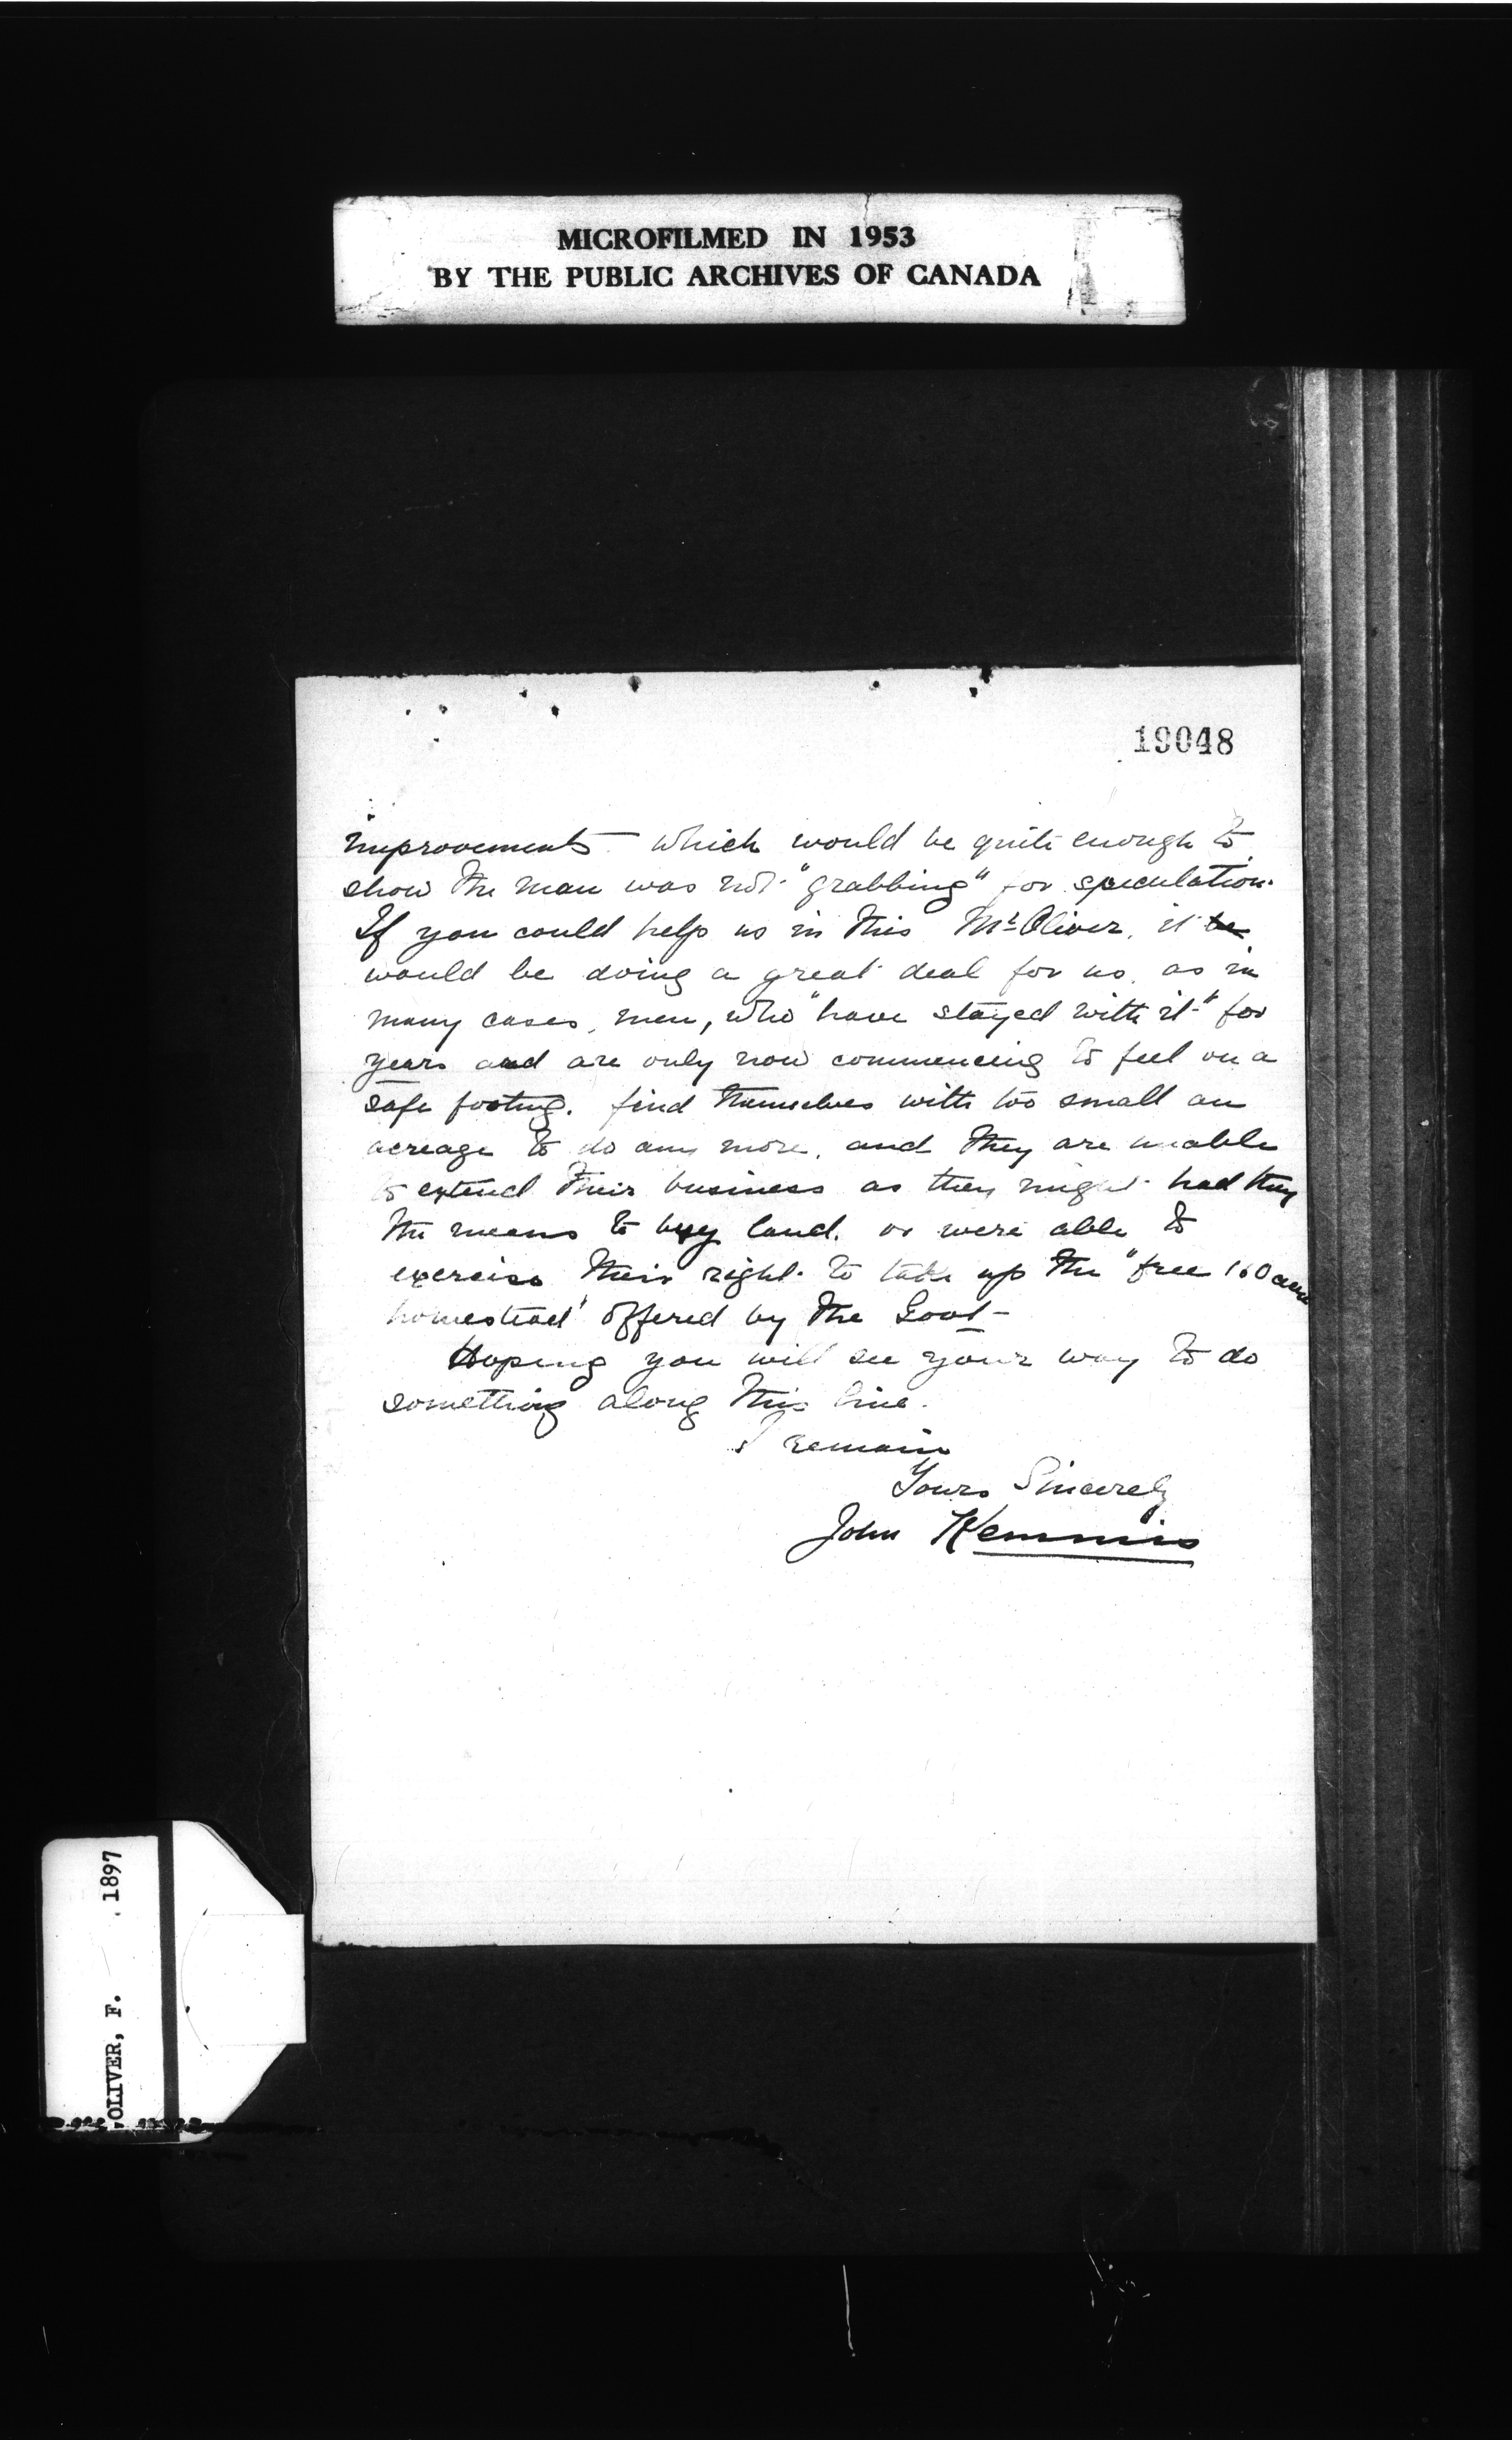 MICROFILMED IN 1953
BY THE PUBLIC ARCHIVES OF CANADA
19048
improvements - which would be quite enough to
show the man was not "grabbing" for speculation.
If you could help us in this Mr Oliver, it be
would be doing a great deal for us, as in
many cases, men, who "have stayed with it" for
years and are only now commencing to feel on a
safe footing, find themselves with too small an
acreage to do any more, and they are unable
to extend their business as they might had they
the means to buy land, or were able to
exercise their right to take up the "free 160 acre
homestead" offered by the Govt-
Hoping you will see your way to do
something along this line.
I remain
Yours Sincerely
John Kemmis
OLIVER, F. 1897